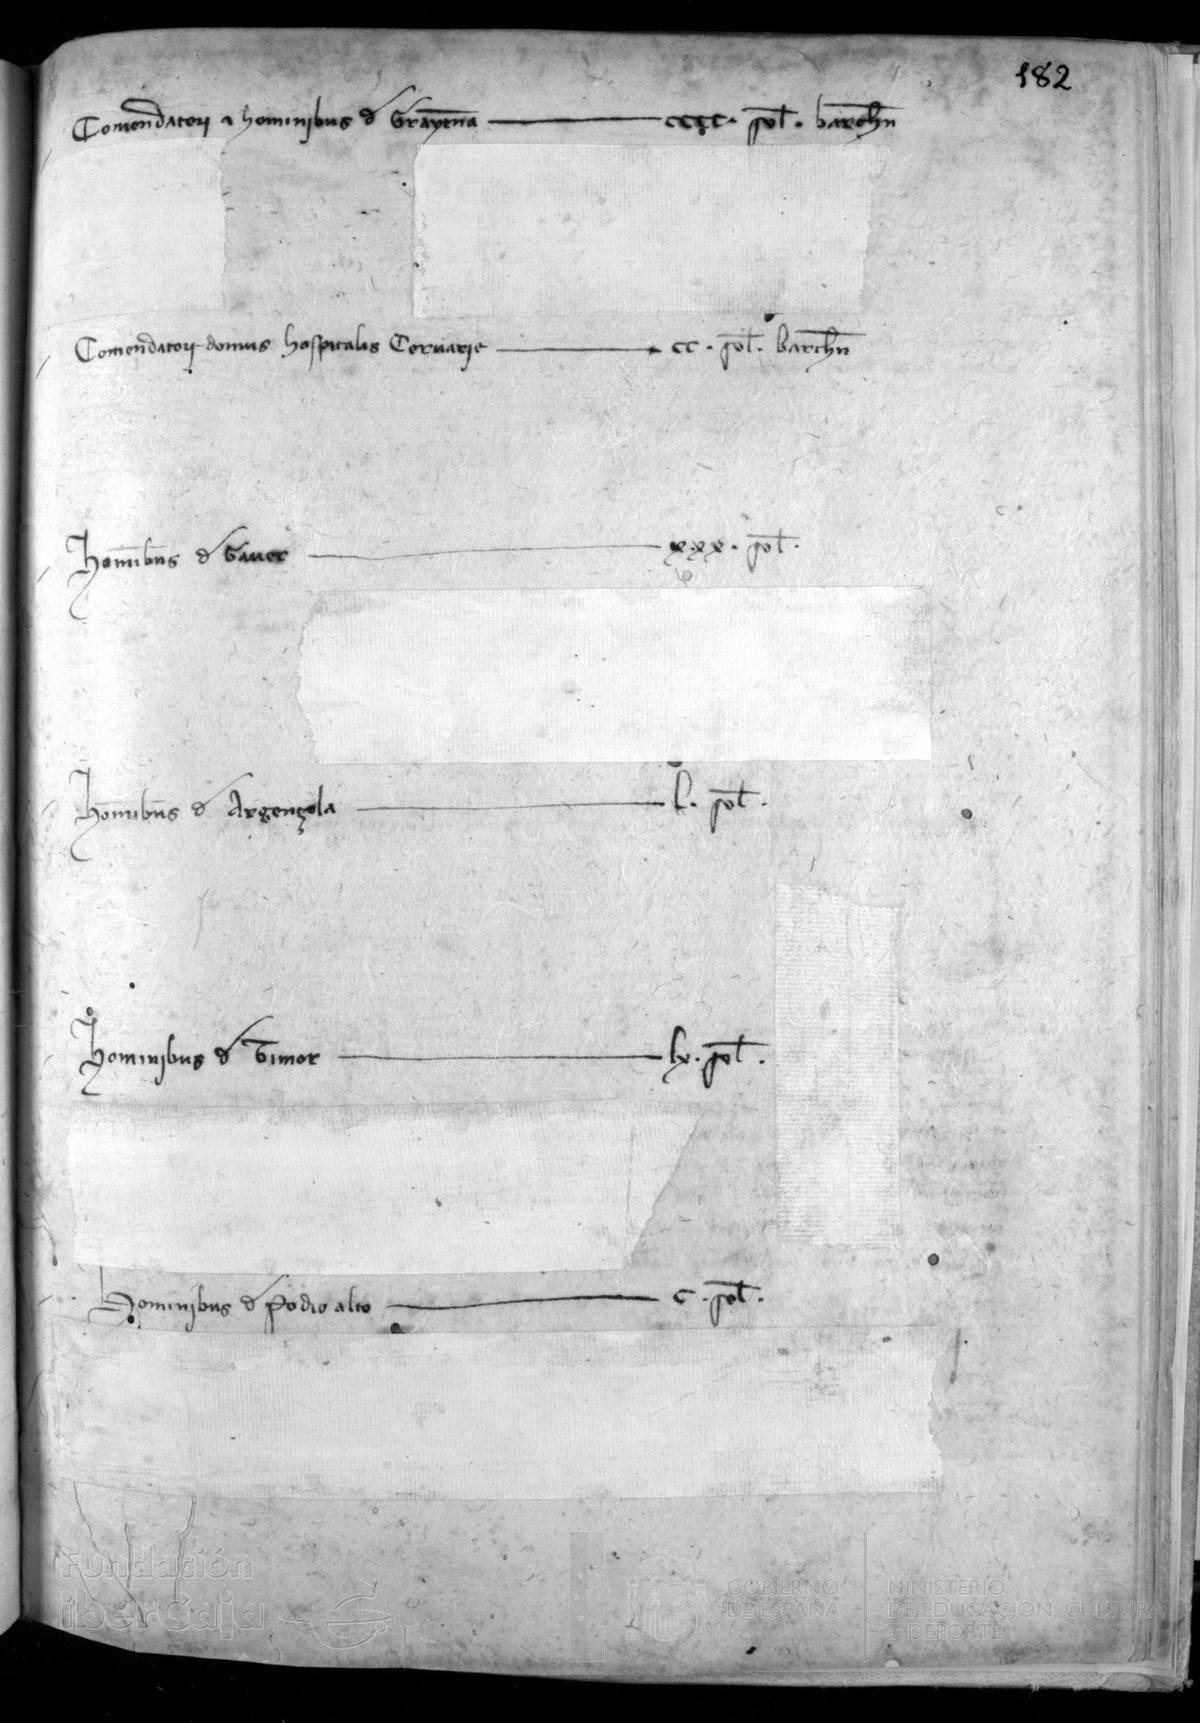 182
Comendatori ⁊ hominibus d Grayena — cccc. sol. barchn
Comendatori domus hospitalis Ceruarie — cc. sol. barchn
Homibus d Gauer — xxx. sol.
Homibus d Argençola — l. sol.
Hominibus d Timor — lx. sol.
Hominibus d Podio alto — c. sol.
Fundación
iberCaja
GOBIERNO
DE ESPAÑA
MINISTERIO
DE EDUCACIÓN, CULTURA
Y DEPORTE